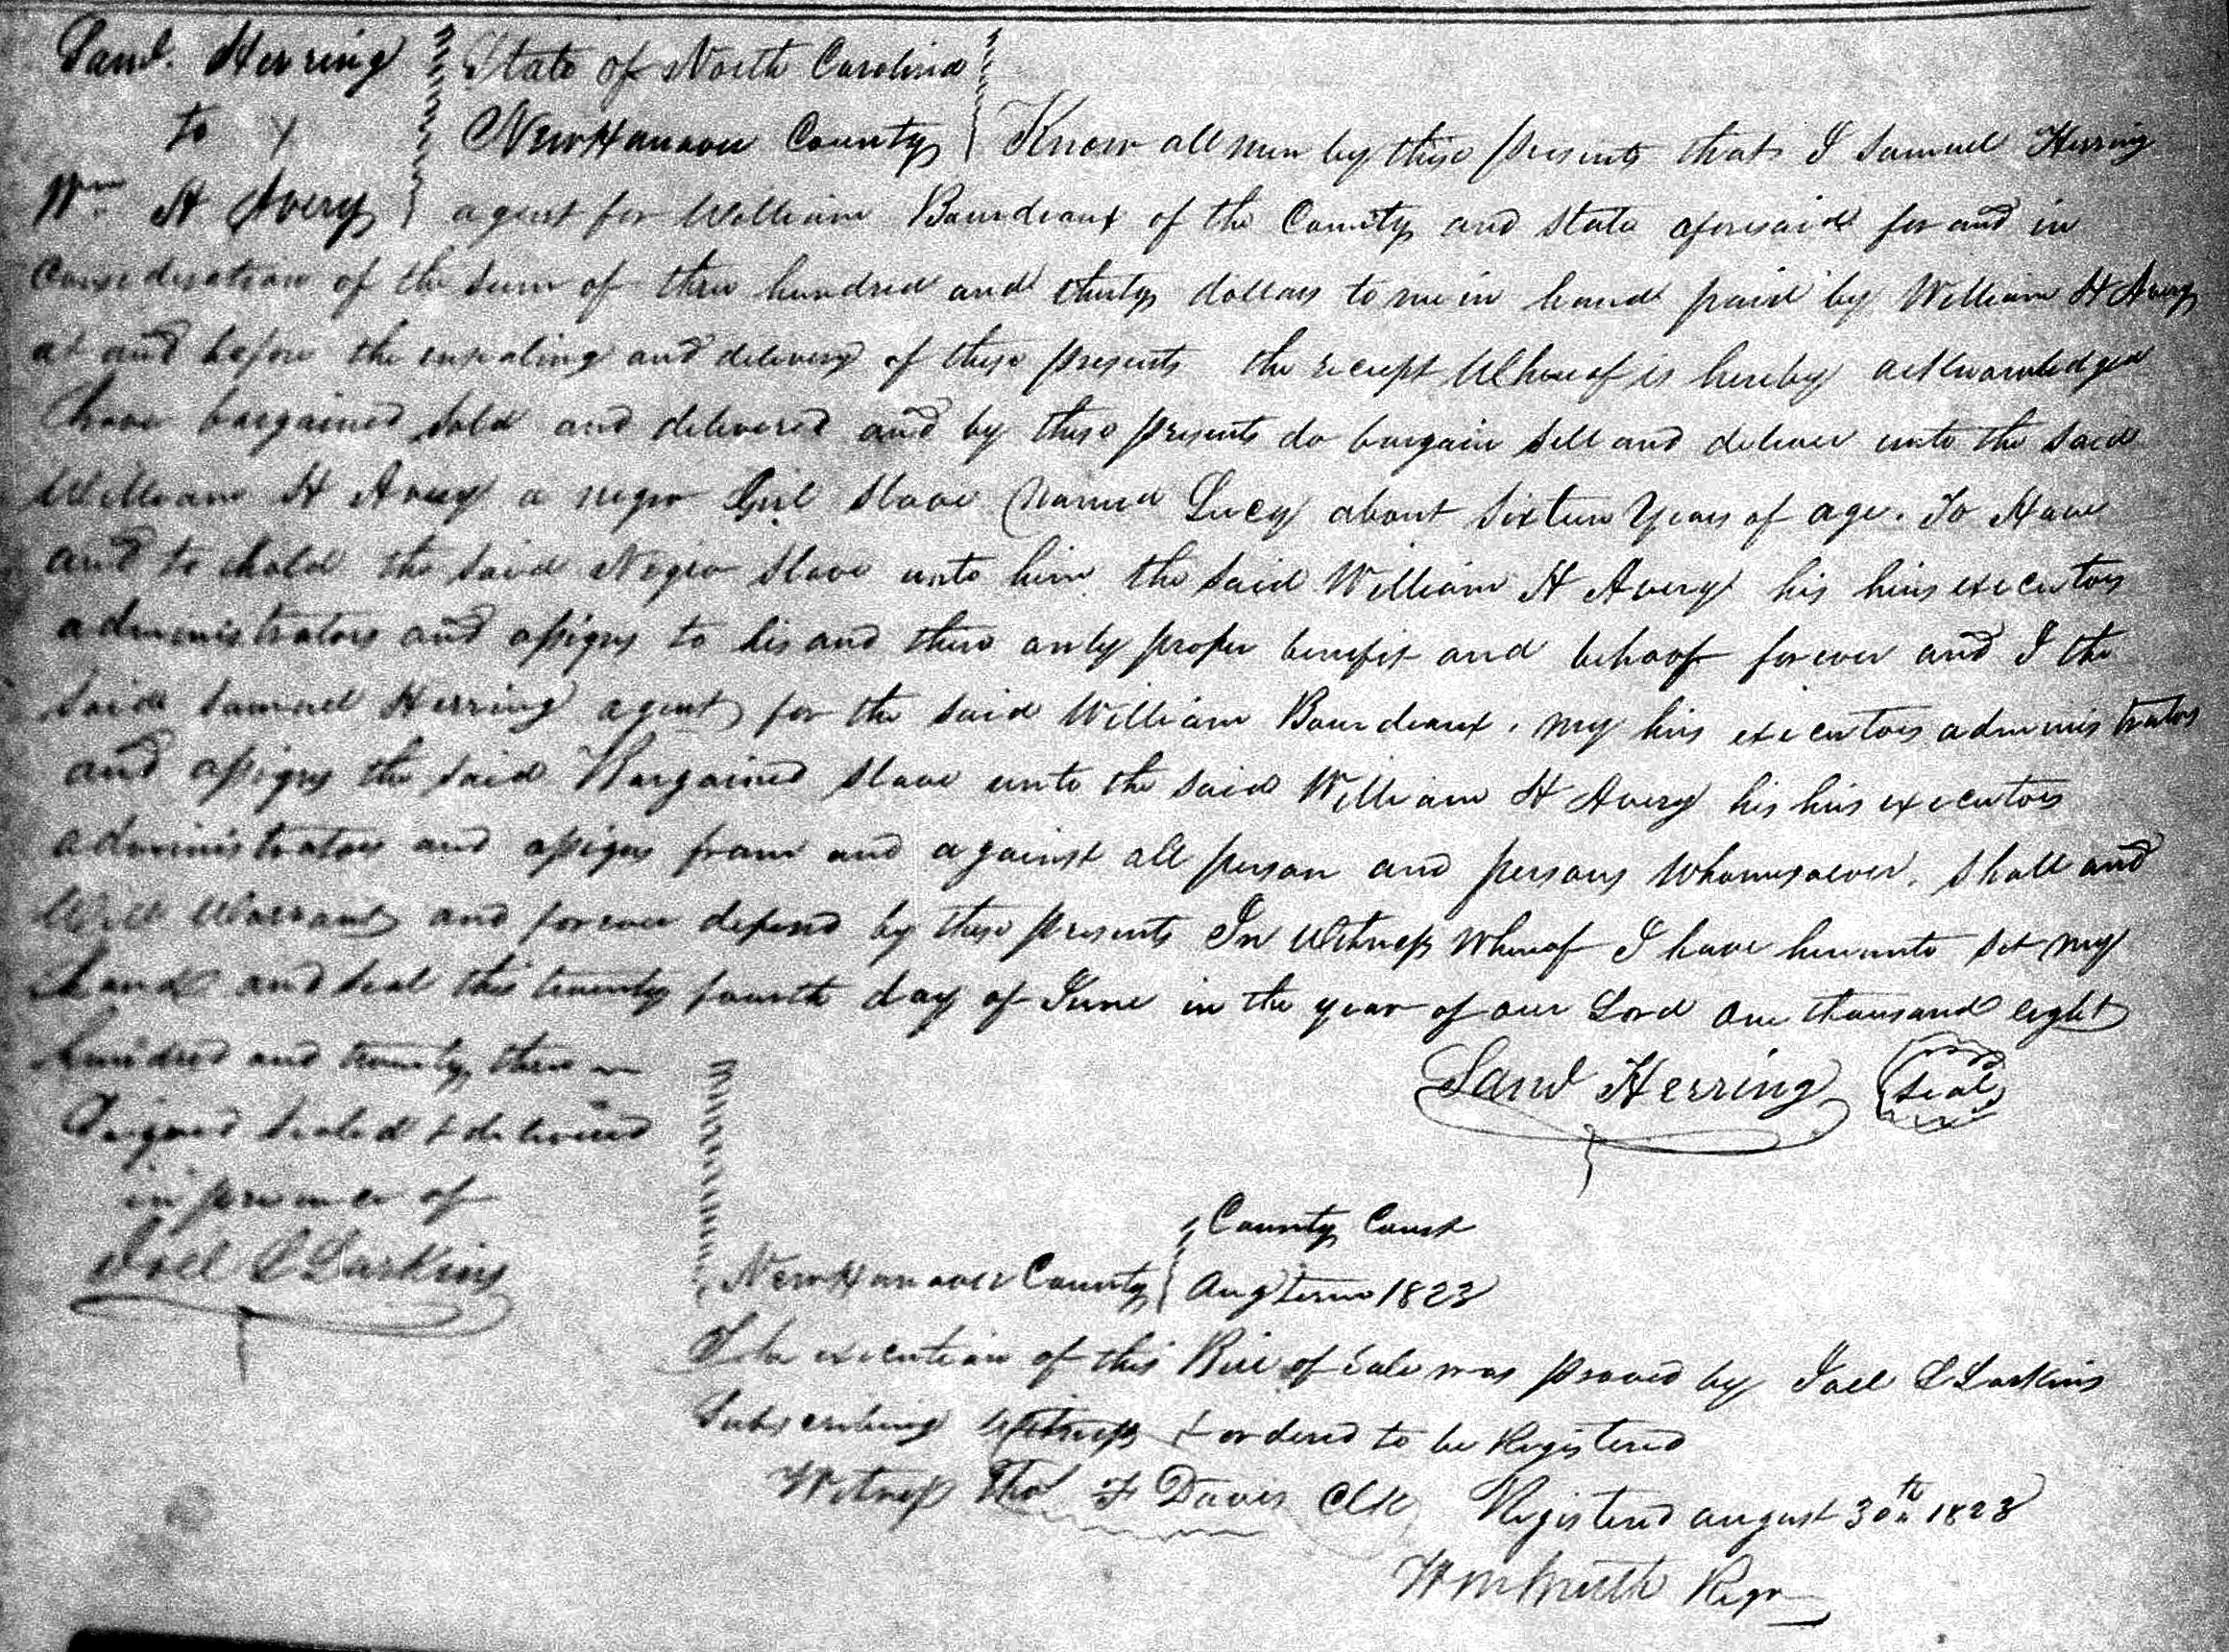 Saml. Herring
to
Wm. H Avery
State of North Carolina
New Hanover County Know all men by these presents that I Samuel Herring
agent for William Bourdeaux of the County and State aforesaid for and in
Consideration of the sum of three hundred and thirty dollars to me in hand paid by William H Avery
at and before the ensealing and delivery of these presents the receipt Whereof is hereby acknowledged
have bargained sold and delivered and by these presents do bargain sell and deliver unto the said
William H Avery a negro Girl Slave named Lucy about Sixteen Years of age. To Have
and to hold the said Negro Slave unto him the said William H Avery his heirs executors
administrators and assigns to his and their only proper benefit and behoof forever and I the
said Samuel Herring agent for the said William Bourdeaux, my heirs executors administrators
and assigns the said Bargained Slave unto the said William H Avery his heirs executors
administrators and assigns from and against all person and persons whomsoever. shall and
Will Warrant and forever defend by these presents In Witness whereof I have hereunto set my
hand and seal this twenty fourth day of June in the year of our Lord one thousand eight
hundred and twenty three
Saml Herring Seal
Signed sealed & delivered
in presence of
Joel L Larkins
County Court
New Hanover County Aug term 1823
The execution of this Bill of Sale was proved by Joel L Larkins
Subscribing Witness & ordered to be Registered
Witness Thos F Davis Clk Registered august 30th 1823
Regr